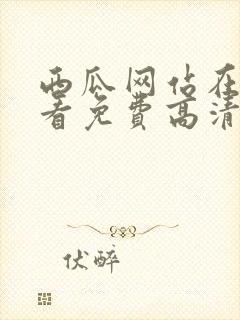 西瓜网站在
看免费高清
伏醉